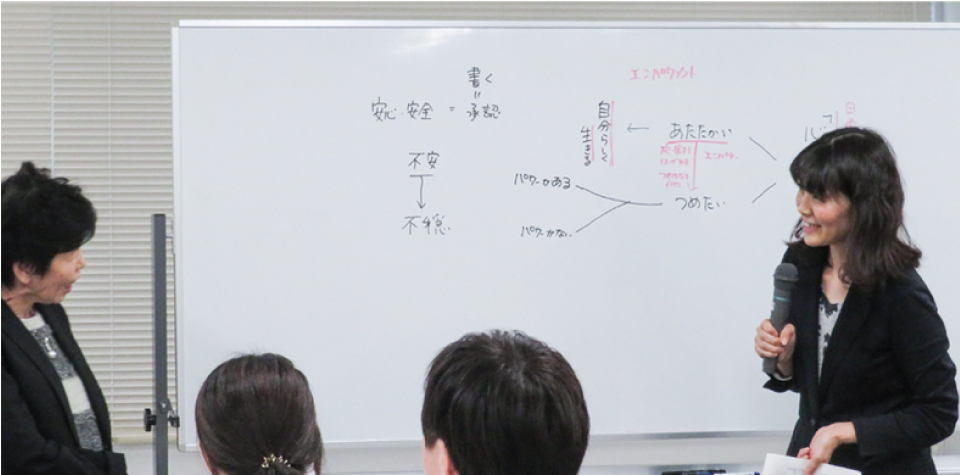 書く
=
安心・安全 = 承認
不安
↓
不穏
エンパワメント
自分らしく
生きる
← あたたかい
つめたい
パワーがある
パワーがない
「心